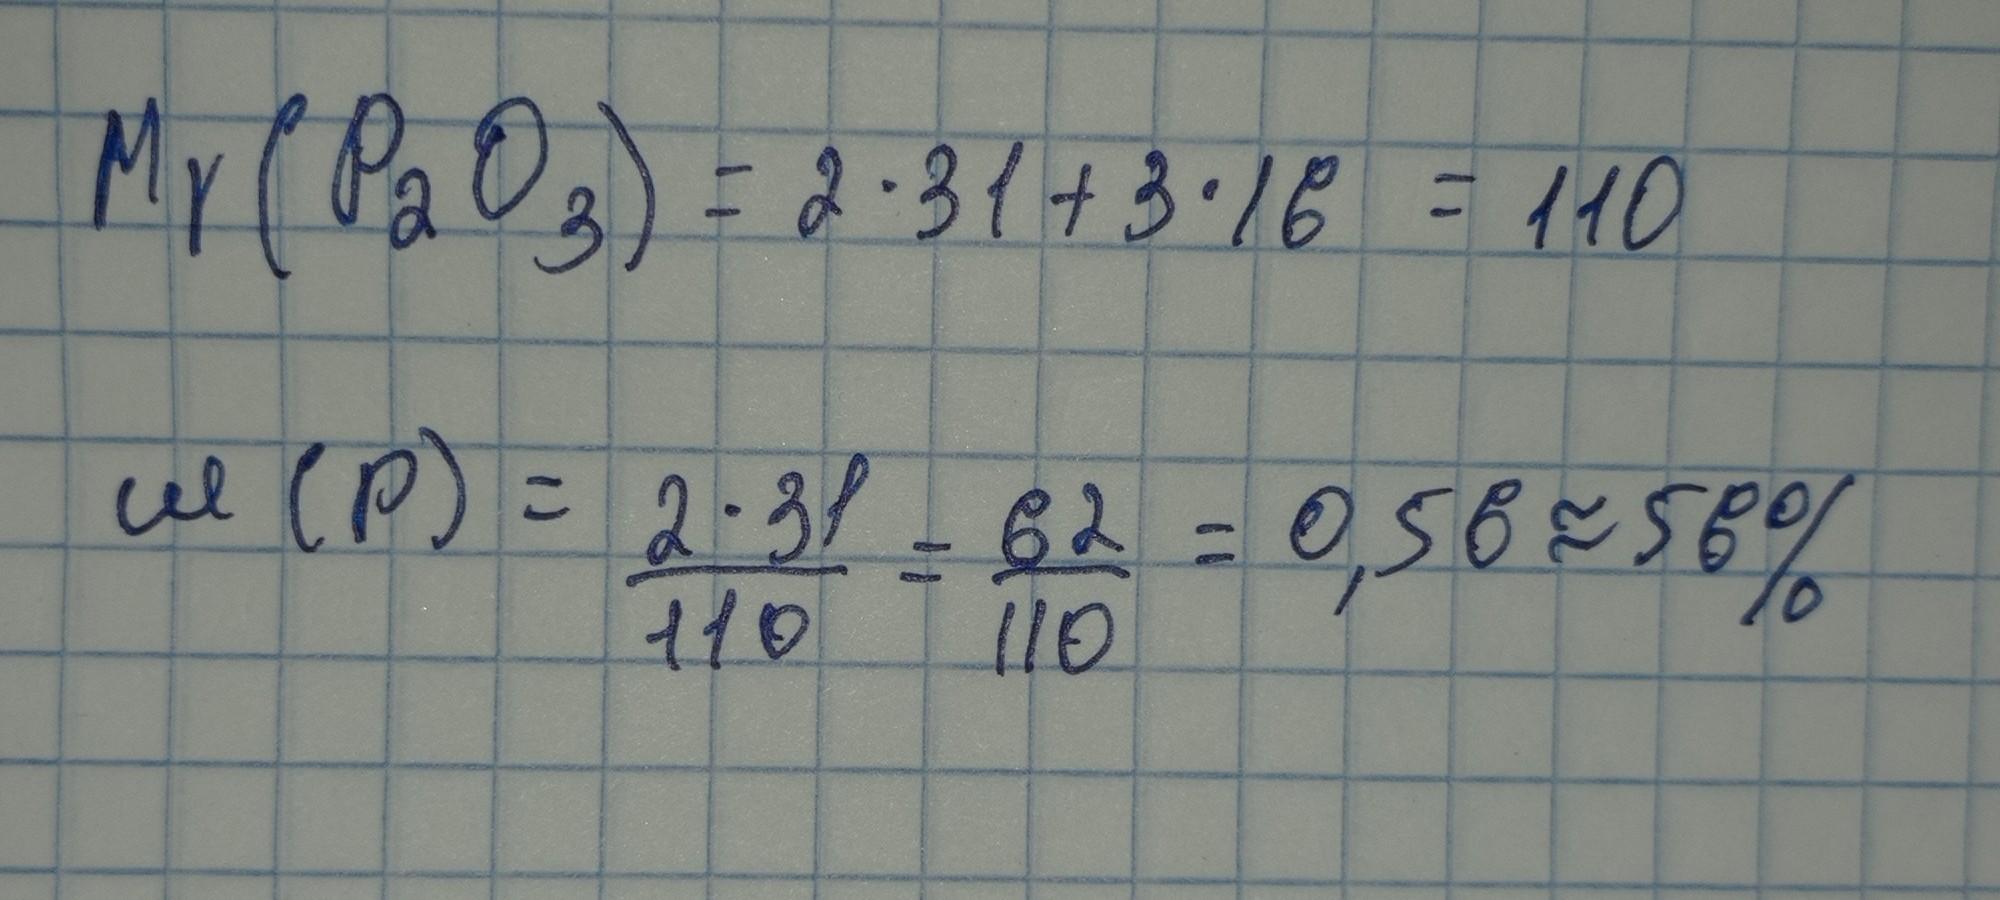 Mr(P₂O₃) = 2·31+3·16 = 110
ω(P) = 2·31/110 = 62/110 = 0,56 ≈ 56%